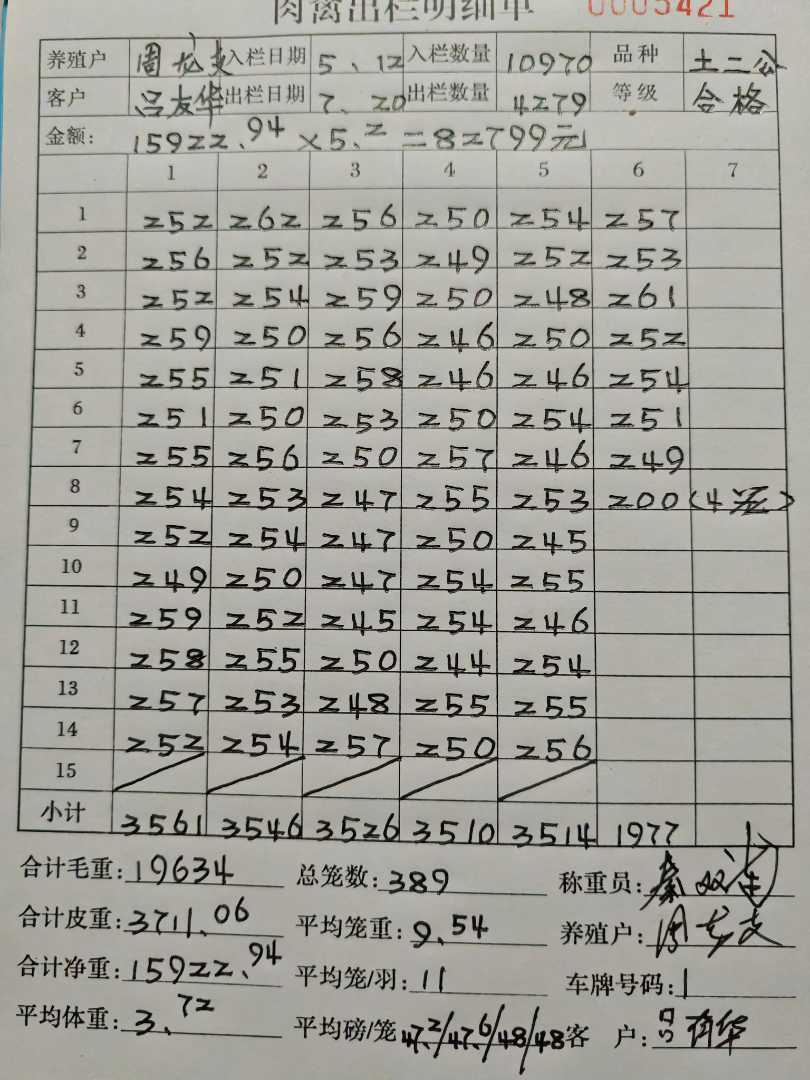 肉禽出栏明细单 0005421
养殖户 周龙支 入栏日期 5、12 入栏数量 10970 品种 土二公
客户 吕友华 出栏日期 7、20 出栏数量 4279 等级 合格
金额: 15922.94×5.2=82799元
1 2 3 4 5 6 7
1 252 262 256 250 254 257
2 256 252 253 249 252 253
3 252 254 259 250 248 261
4 259 250 256 246 250 252
5 255 251 258 246 246 254
6 251 250 253 250 254 251
7 255 256 250 257 246 249
8 254 253 247 255 253 200(4笼)
9 252 254 247 250 245
10 249 250 247 254 255
11 259 252 245 254 246
12 258 255 250 244 254
13 257 253 248 255 255
14 252 254 257 250 256
15
小计 3561 3546 3526 3510 3514 1977
合计毛重: 19634 总笼数: 389 称重员:
合计皮重: 3711.06 平均笼重: 9.54 养殖户: 周龙支
合计净重: 15922.94 平均笼/羽: 11 车牌号码: 1
平均体重: 3.72 平均磅/笼 47.2/47.6/48/48 客户: 吕有华